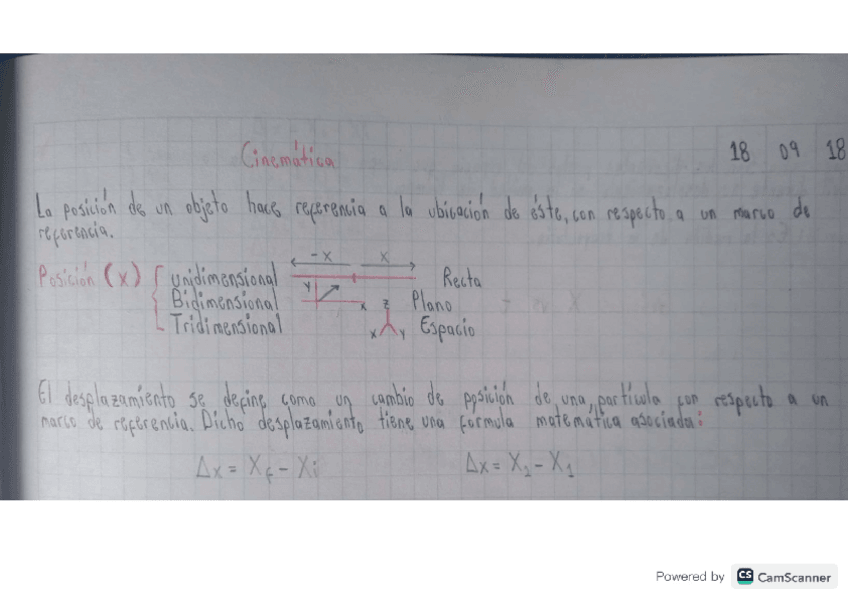 Cinemática
18 09 18
La posición de un objeto hace referencia a la ubicación de éste, con respecto a un marco de
referencia.
Posición (x)
unidimensional
-X X
Recta
Bidimensional
Y
X
Plano
Tridimensional
Z
X Y
Espacio
El desplazamiento se define como un cambio de posición de una partícula con respecto a un
marco de referencia. Dicho desplazamiento tiene una formula matemática asociada:
Δx = Xf - Xi
Δx = X2 - X1
Powered by CS CamScanner